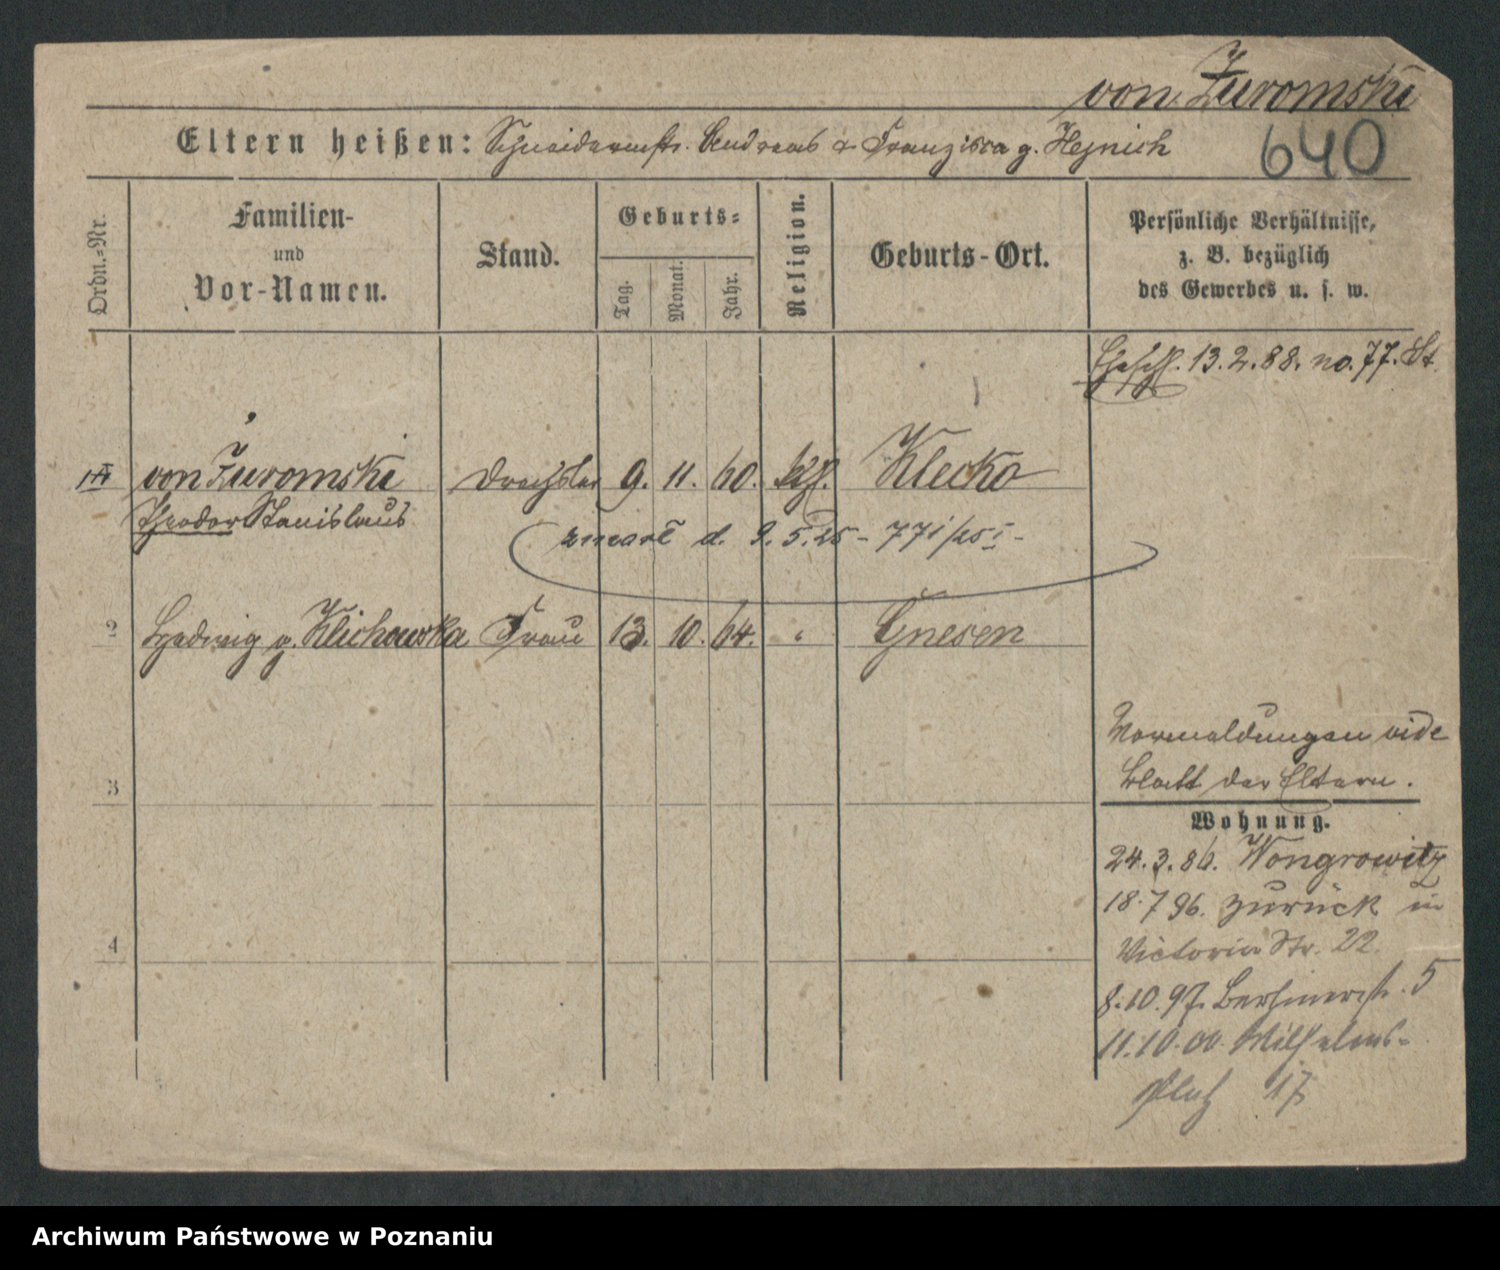 von Żuromski
640
Eltern heißen: Schneidermstr. Andreas & Franzisca g. Hejnich
Ordn.-Nr.
Familien-
und
Vor-Namen.
Stand.
Geburts-
Tag.
Monat.
Jahr.
Religion.
Geburts-Ort.
Persönliche Verhältnisse,
z. B. bezüglich
des Gewerbes u. s. w.
Ehesch. 13.2.88. no. 77. St
von Żuromski Drechsler 9. 11. 60. kth. Klecko
Theodor Stanislaus
zmarł d. 9.5.25 - 771/25
2 Hedwig g. Klichowska Frau 13. 10. 64. " Gnesen
3
4
Vormeldungen vide
Blatt der Eltern.
Wohnung.
24.3.86. Wongrowitz
18.7.96. zurück in
Victoria Str. 22.
8.10.97. Berlinerstr. 5
11.10.00. Wilhelms-
platz 17
Archiwum Państwowe w Poznaniu